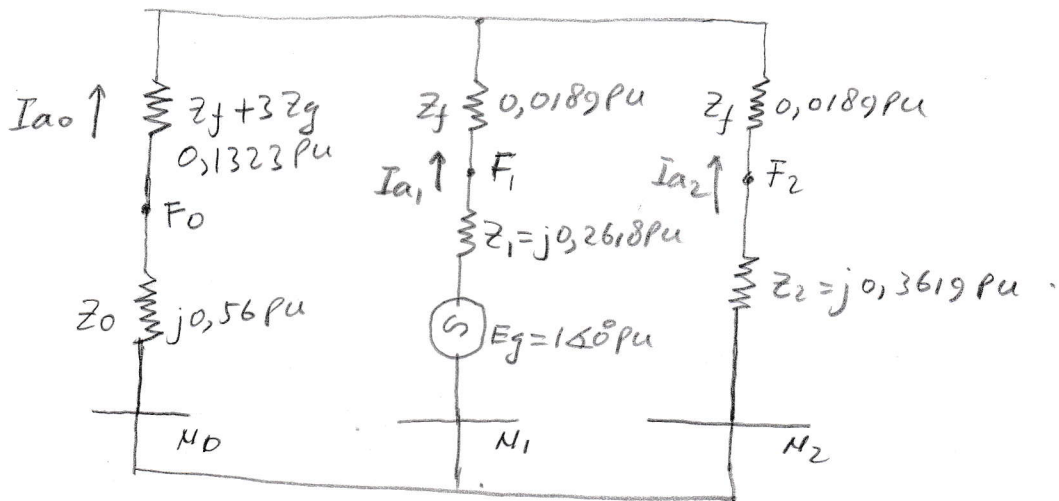 Iao ↑
Zf+3Zg
0,1323 pu
Fo
Zo
j0,56 pu
N0
Zf
0,0189 pu
Ia1 ↑
F1
Z1=j0,2618 pu
Eg=1∠0° pu
N1
Zf
0,0189 pu
Ia2 ↑
F2
Z2=j0,3619 pu
N2